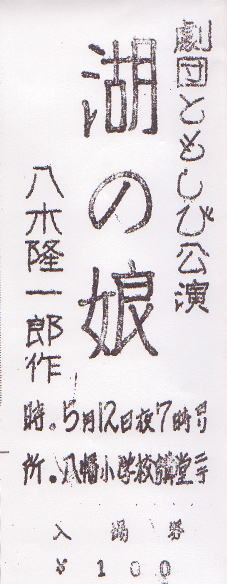 劇団ともしび公演
湖の娘
八木隆一郎作
時.5月12日夜7時ヨリ
所.八幡小学校講堂ニテ
入場券
¥100